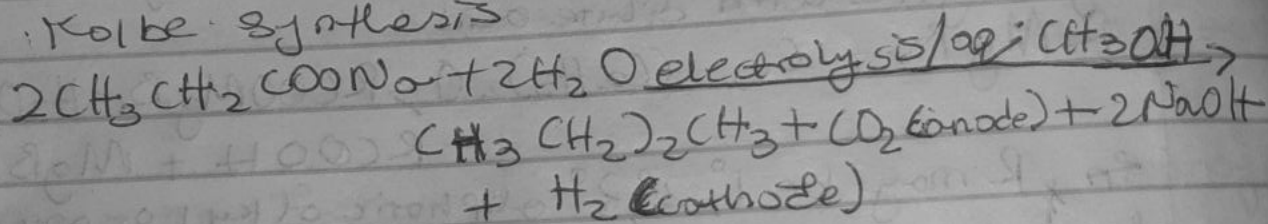 Kolbe synthesis
2CH3CH2COONa + 2H2O electrolysis/aq; CH3OH →
CH3(CH2)2CH3 + CO2 (anode) + 2NaOH
+ H2 (cathode)